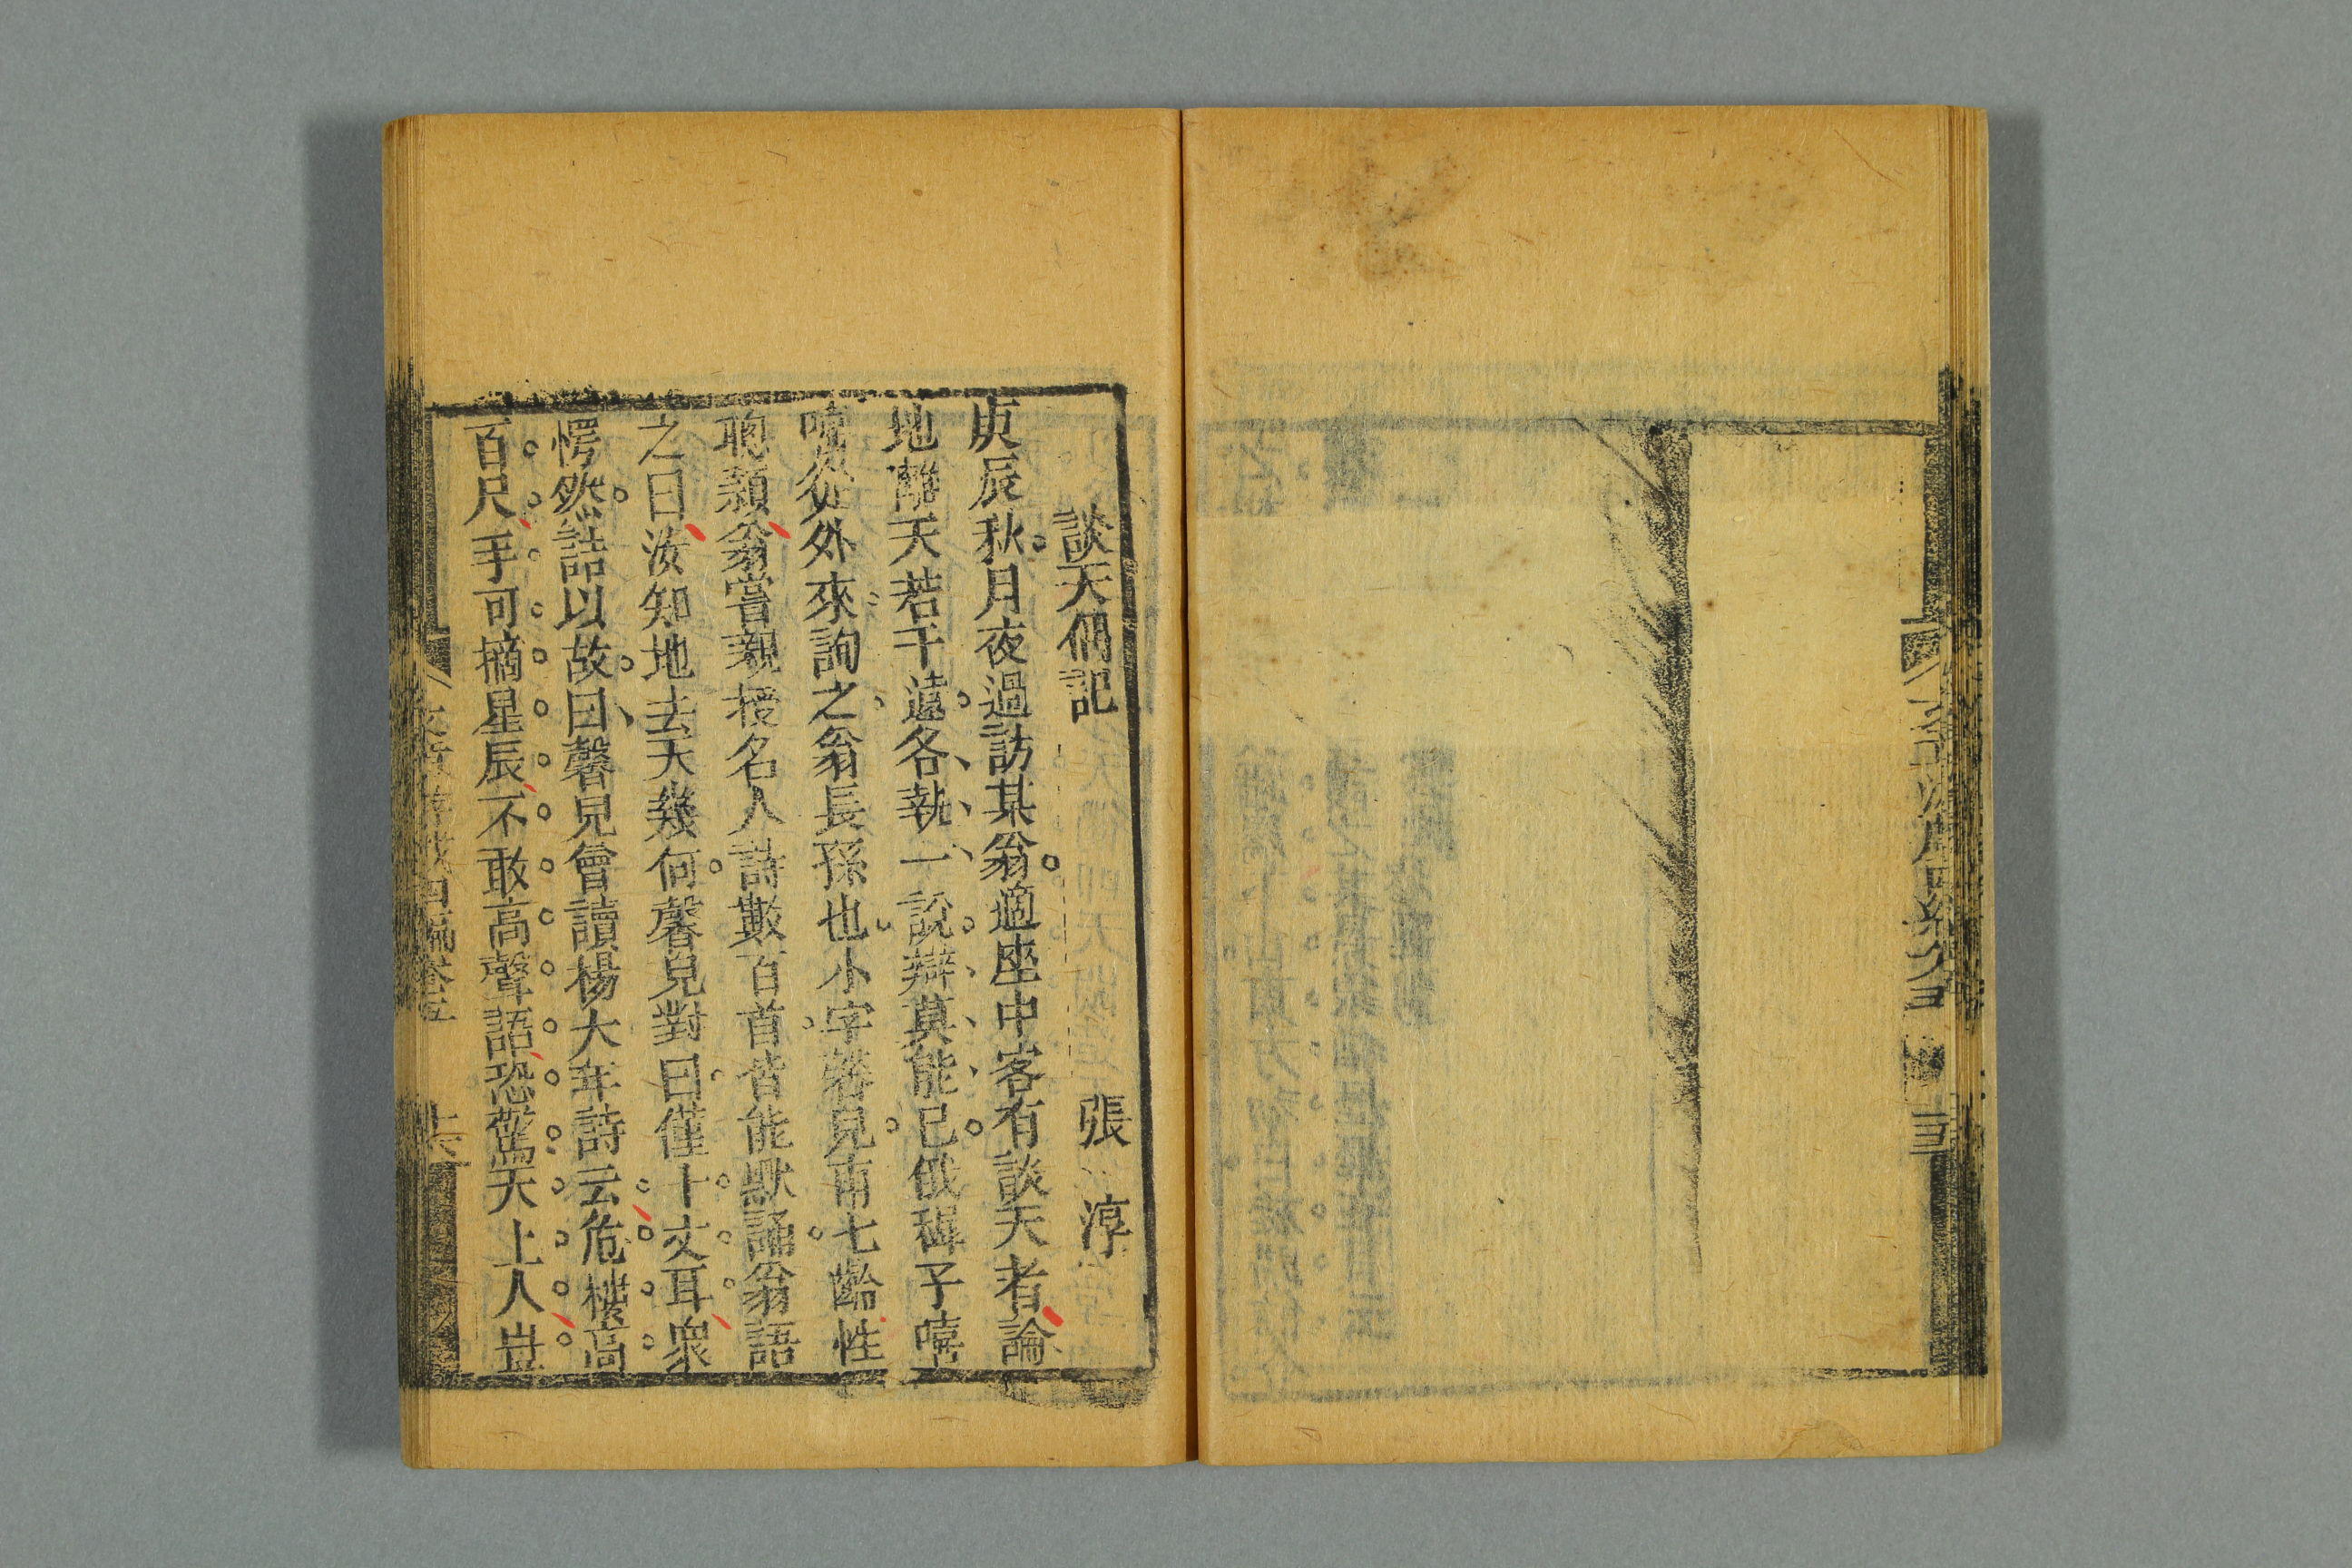 談天偶記 張淳
庚辰秋月夜過訪某翁適座中客有談天者論
地離天若干遠各執一說辯莫能已俄穉子嘻
嘻從外來詢之翁長孫也小字馨兒甫七齡性
聰穎翁嘗親授名人詩數百首皆能默誦翁語
之曰汝知地去天幾何馨兒對曰僅十丈耳衆
愕然詰以故曰馨兒曾讀楊大年詩云危樓高
百尺手可摘星辰不敢高聲語恐驚天上人豈